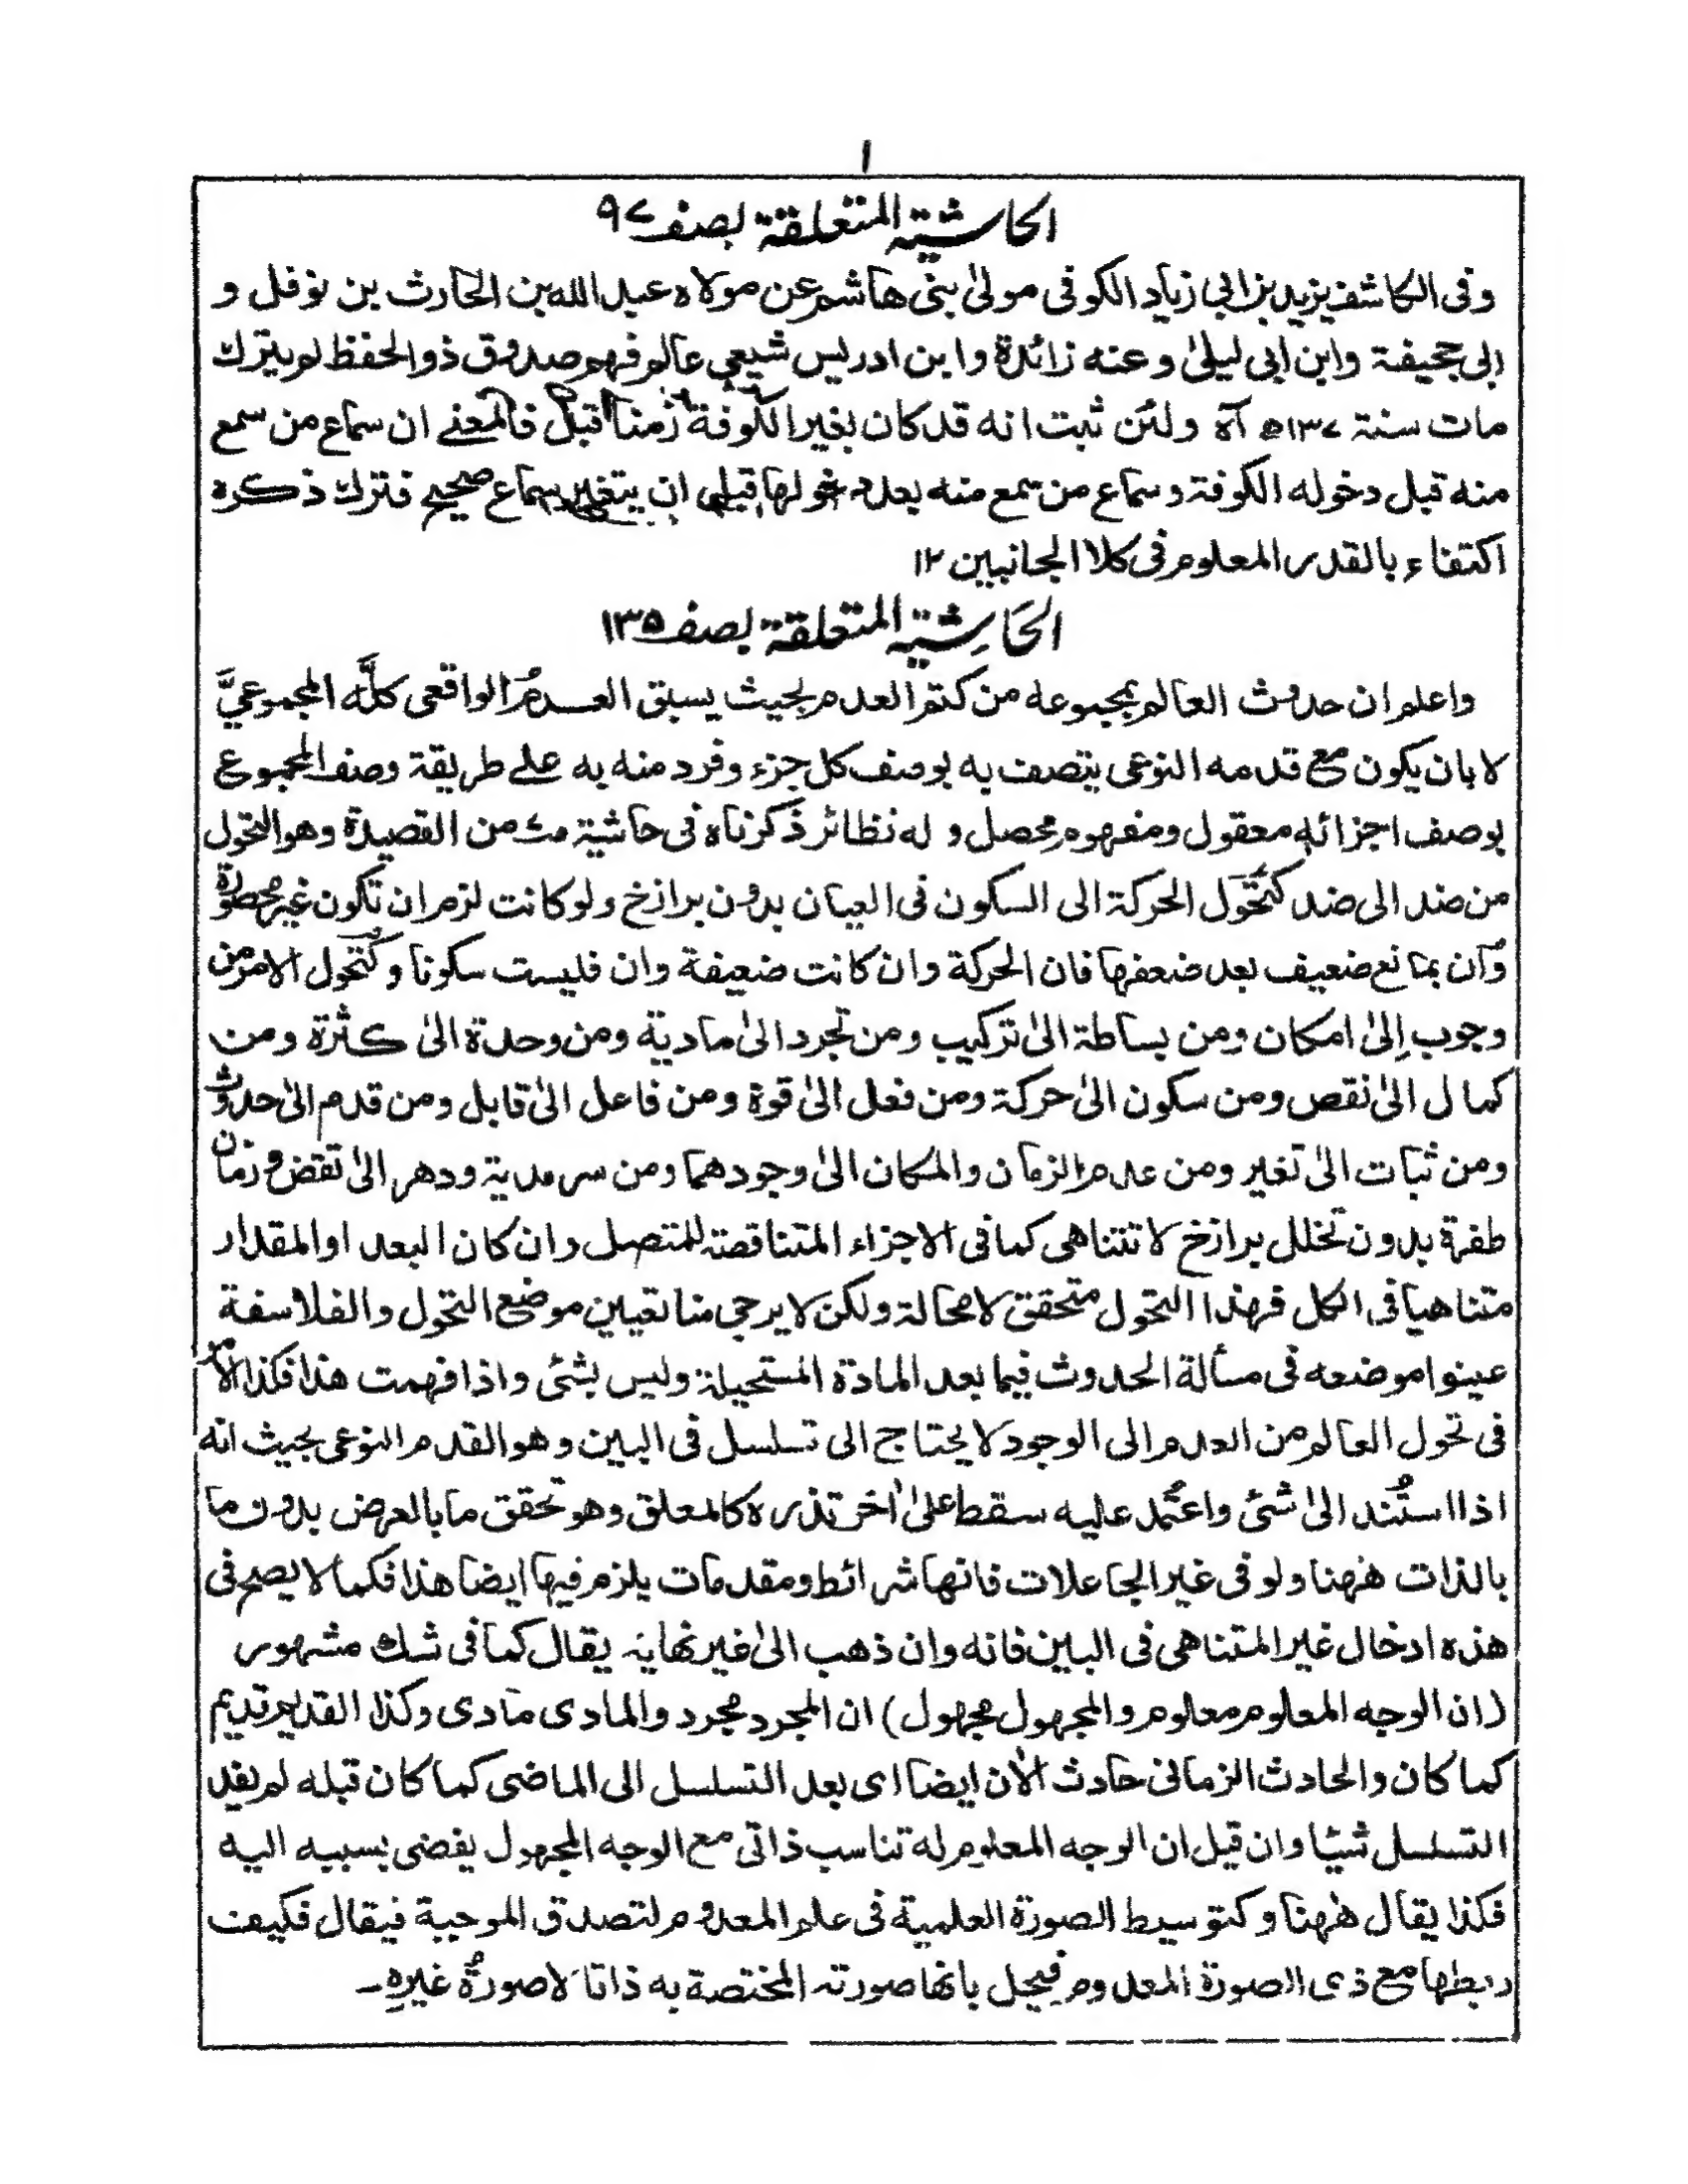 ١
الحاشية المتعلقة بصف ٩٧
وفى الكاشف يزيد بن ابي زياد الكوفى مولىٰ بنى هاشم عن مولاه عبد الله بن الحارث بن نوفل و
ابى جحيفة وابن ابى ليلىٰ وعنه زائدة وابن ادريس شيعي عالم فهم صدوق ذو الحفظ لم يترك
مات سنة ١٣٧ه آه ولئن ثبت انه قد كان بغير الكوفة زمنا قبل فالمعنى ان سماع من سمع
منه قبل دخوله الكوفة وسماع من سمع منه بعد دخولها قبل ان يتغير سماع صحيح فترك ذكره
اكتفاء بالقدر المعلوم فى كلا الجانبين ١٢
الحَاشِية المتعلقة بصف ١٣٥
واعلم ان حدوث العالم بمجموعه من كتم العدم بحيث يسبق العدمُ الواقعى كلَّه المجموعيَّ
لا بان يكون مع قدمه النوعى يتصف به بوصف كل جزء وفرد منه به علے طريقة وصف المجموع
بوصف اجزائه معقول ومفهوم محصل وله نظائر ذكرناه فى حاشية من القصيدة وهو التحول
من ضد الى ضد كتحَوّل الحركة الى السكون فى العيان بدون برازخ ولو كانت لزم ان تكون غير محصورة
وآن بمانع ضعيف بعد ضعفها فان الحركة وان كانت ضعيفة وان فليست سكونا وكتحول الامر من
وجوب اِلىٰ امكان ومن بساطة الىٰ تركيب ومن تجرد الىٰ مادية ومن وحدة الىٰ كثرة ومن
كمال الىٰ نقص ومن سكون الىٰ حركة ومن فعل الىٰ قوة ومن فاعل الىٰ قابل ومن قدم الىٰ حدوث
ومن ثبات الىٰ تغير ومن عدم الزمان والمكان الىٰ وجودهما ومن سرمدية ودهر الىٰ تقض وزمان
طفرة بدون تخلل برازخ لا تتناهى كما فى الاجزاء المتناقصة للمتصل وان كان البعد او المقدار
متناهيا فى الكل فهذا التحول متحقق لا محالة ولكن لا يرجى منا تعيين موضع التحول والفلاسفة
عينوا موضعه فى مسألة الحدوث فيما بعد المادة المستحيلة وليس بشئ واذا فهمت هذا فكذا الامر
فى تحول العالم من العدم الى الوجود لا يحتاج الى تسلسل فى البين وهو القدم النوعى بحيث انه
اذا استُند الىٰ شئ واعتُمد عليه سقط علىٰ اٰخر تذره كالمعلق وهو تحقق ما بالعرض بدون ما
بالذات هٰهنا ولو فى غير الجاعلات فانها شرائط ومقدمات يلزم فيها ايضا هذا فكما لا يصح فى
هذه ادخال غير المتناهى فى البين فانه وان ذهب الىٰ غير نهاية يقال كما فى شك مشهور
(ان الوجه المعلوم معلوم والمجهول مجهول) ان المجرد مجرد والمادى مادى وكذا القديم قديم
كما كان والحادث الزمانى حادث الاٰن ايضا اى بعد التسلسل الى الماضى كما كان قبله لم يفد
التسلسل شيئا وان قيل ان الوجه المعلوم له تناسب ذاتى مع الوجه المجهول يفضى بسببه اليه
فكذا يقال هٰهنا وكتوسيط الصورة العلمية فى علم المعدوم لتصدق الموجبة فيقال فكيف
ربطها مع ذى الصورة المعدوم فيجل بانها صورته المختصة به ذاتا لَا صورةُ غيرِهٖ۔